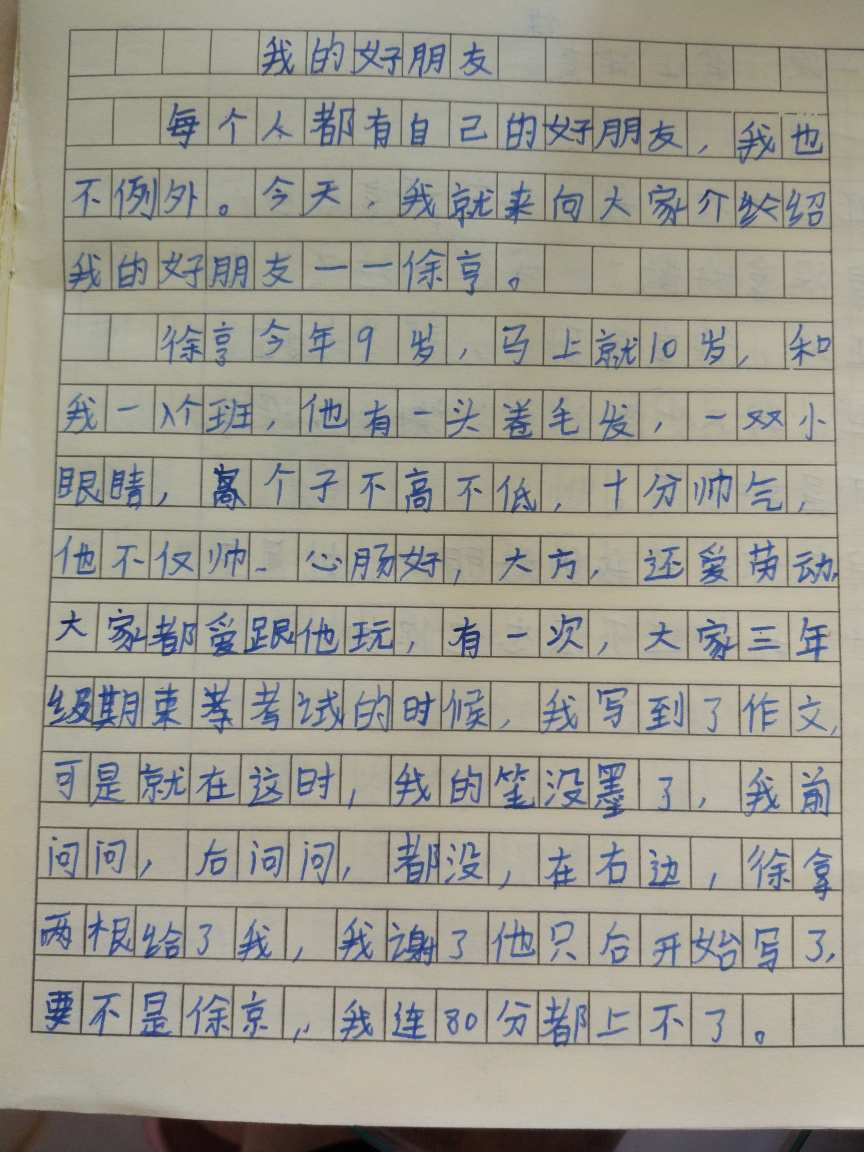 我的好朋友
每个人都有自己的好朋友，我也
不例外。今天，我就来向大家介绍
我的好朋友——徐亨。
徐亨今年9岁，马上就10岁，和
我一个班，他有一头卷毛发，一双小
眼睛，个子不高不低，十分帅气，
他不仅帅、心肠好，大方，还爱劳动，
大家都爱跟他玩，有一次，大家三年
级期束考试的时候，我写到了作文，
可是就在这时，我的笔没墨了，我前
问问，后问问，都没，在右边，徐拿
两根给了我，我谢了他只后开始写了，
要不是徐京，我连80分都上不了。